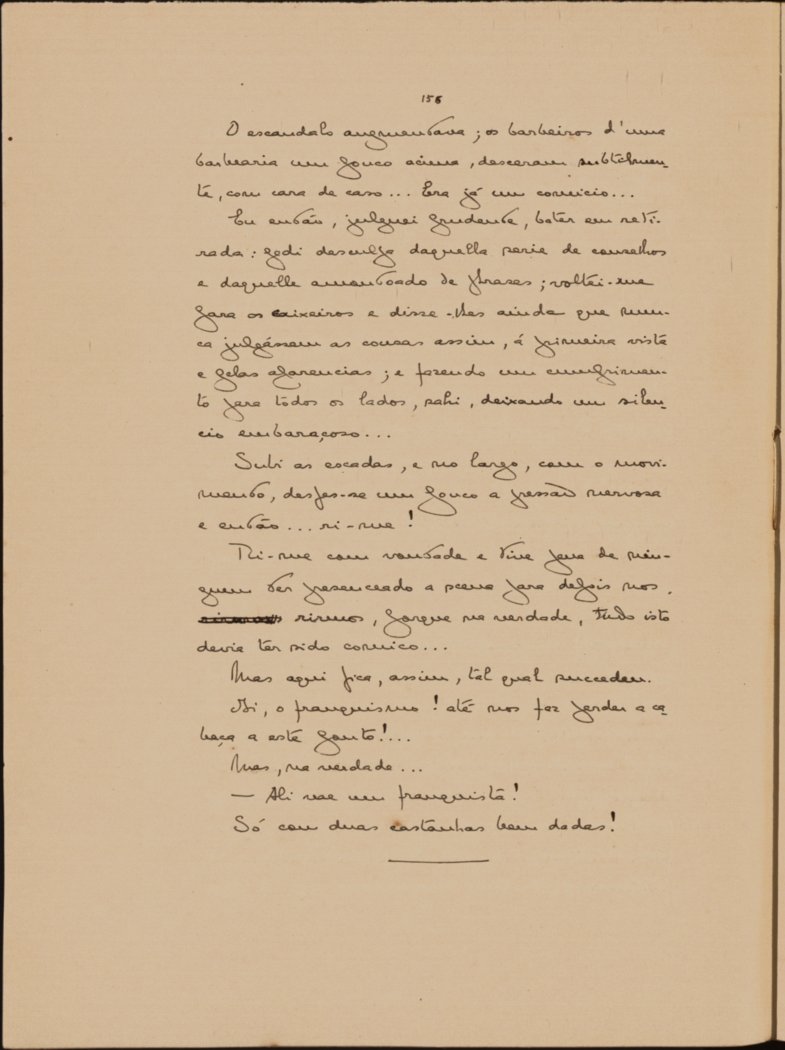 156
O escandalo augmentava; os barbeiros d'uma
barbearia um pouco acima, desceram subtilmen-
te, com cara de caso... Era já um comicio...
Eu então, julguei prudente, bater em reti-
rada: pedi desculpa daquella serie de conselhos
e daquelle amontoado de phrases; voltei-me
para os caixeiros e disse-lhes ainda que nun-
ca julgássem as cousas assim, á primeira vista
e pelas aparencias; e fazendo um cumprimen-
to para todos os lados, sahi, deixando um silen-
cio embaraçoso...
Subi as escadas, e no largo, com o movi-
mento, desfes-se um pouco a pressão nervosa
e então... ri-me!
Ri-me com vontade e tive pena de nin-
guem ter presenceado a scena para depois nos
rirmos, porque na verdade, tudo isto
devia ter sido comico...
Mas aqui fica, assim, tal qual succedeu.
Ai, o franquismo! até nos faz perder a ca-
beça a este ponto!...
Mas, na verdade...
— Ali vae um franquista!
Só com duas castanhas bem dadas!